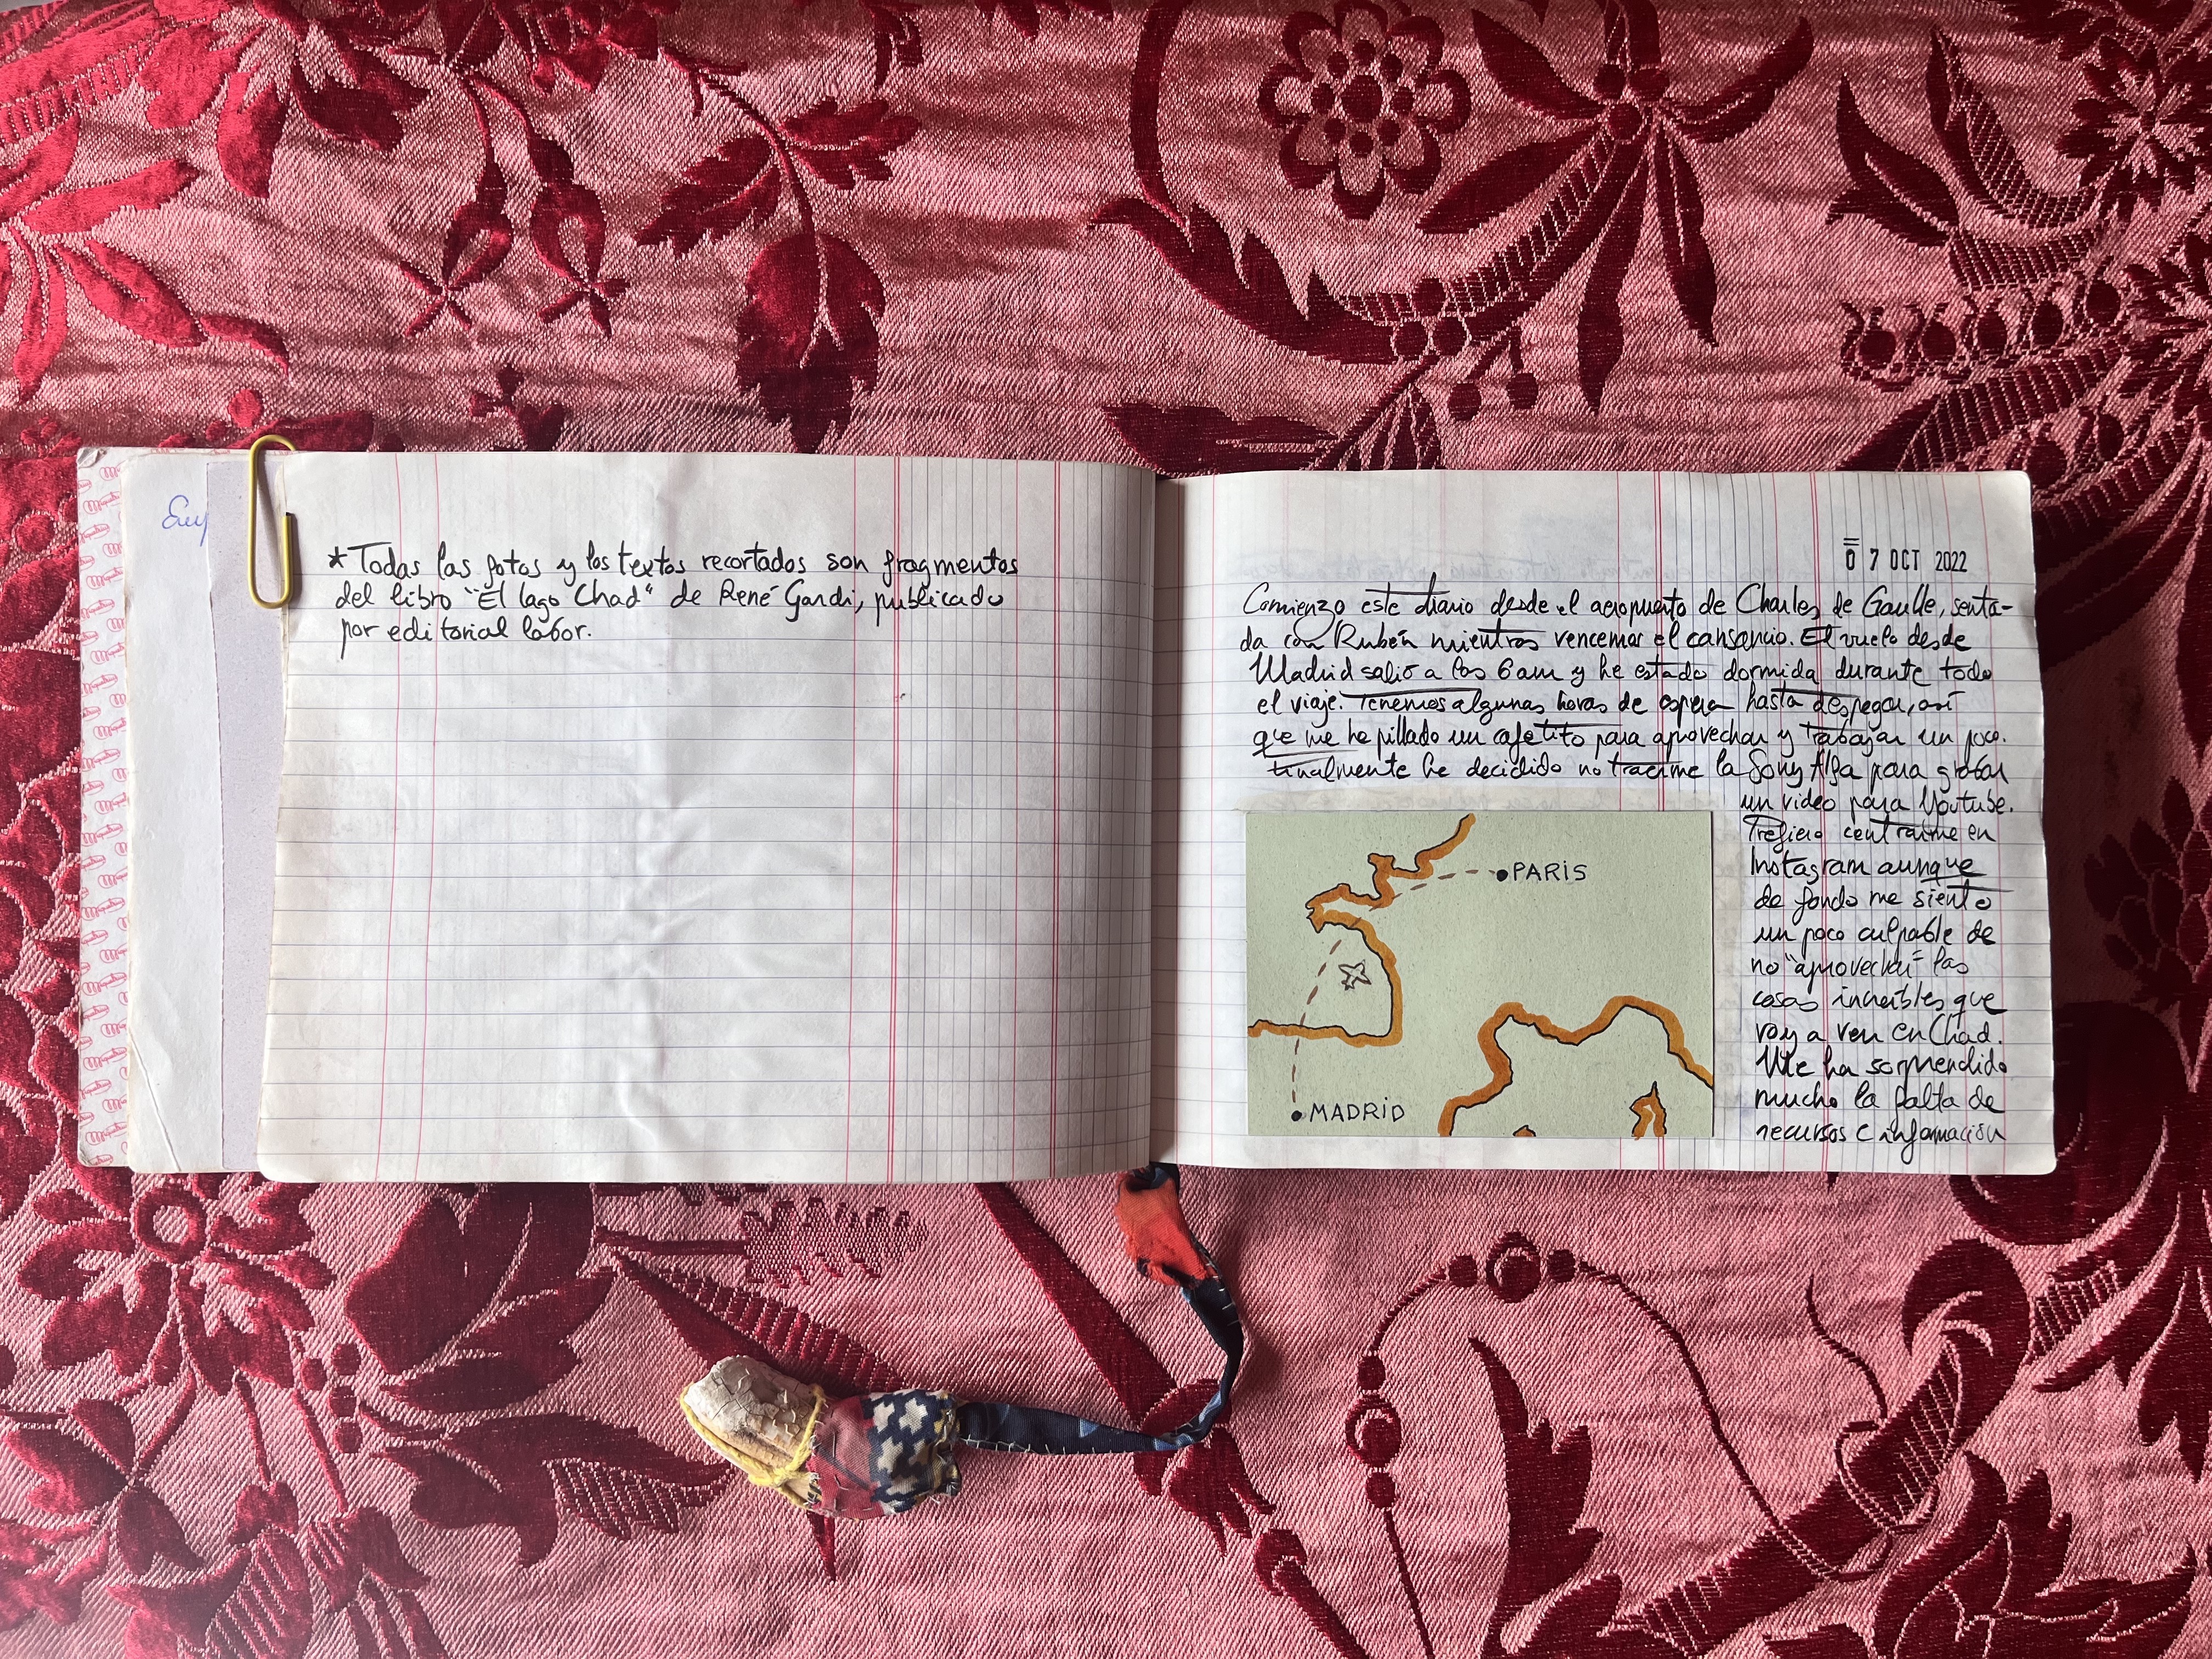 Euy
*Todas las fotos y los textos recortados son fragmentos
del libro "El lago Chad" de René Gardi, publicado
por editorial labor.
07 OCT 2022
Comienzo este diario desde el aeropuerto de Charles de Gaulle, senta-
da con Rubén mientras vencemos el cansancio. El vuelo desde
Madrid salió a las 6am y he estado dormida durante todo
el viaje. Tenemos algunas horas de espera hasta despegar, así
que me he pillado un cafetito para aprovechar y trabajar un poco.
Finalmente he decidido no traerme la Sony Alfa para grabar
un video para Youtube.
Prefiero centrarme en
Instagram aunque
de fondo me siento
un poco culpable de
no "aprovechar" las
cosas increíbles que
voy a ver en Chad.
Me ha sorprendido
mucho la falta de
recursos e información
PARIS
MADRID